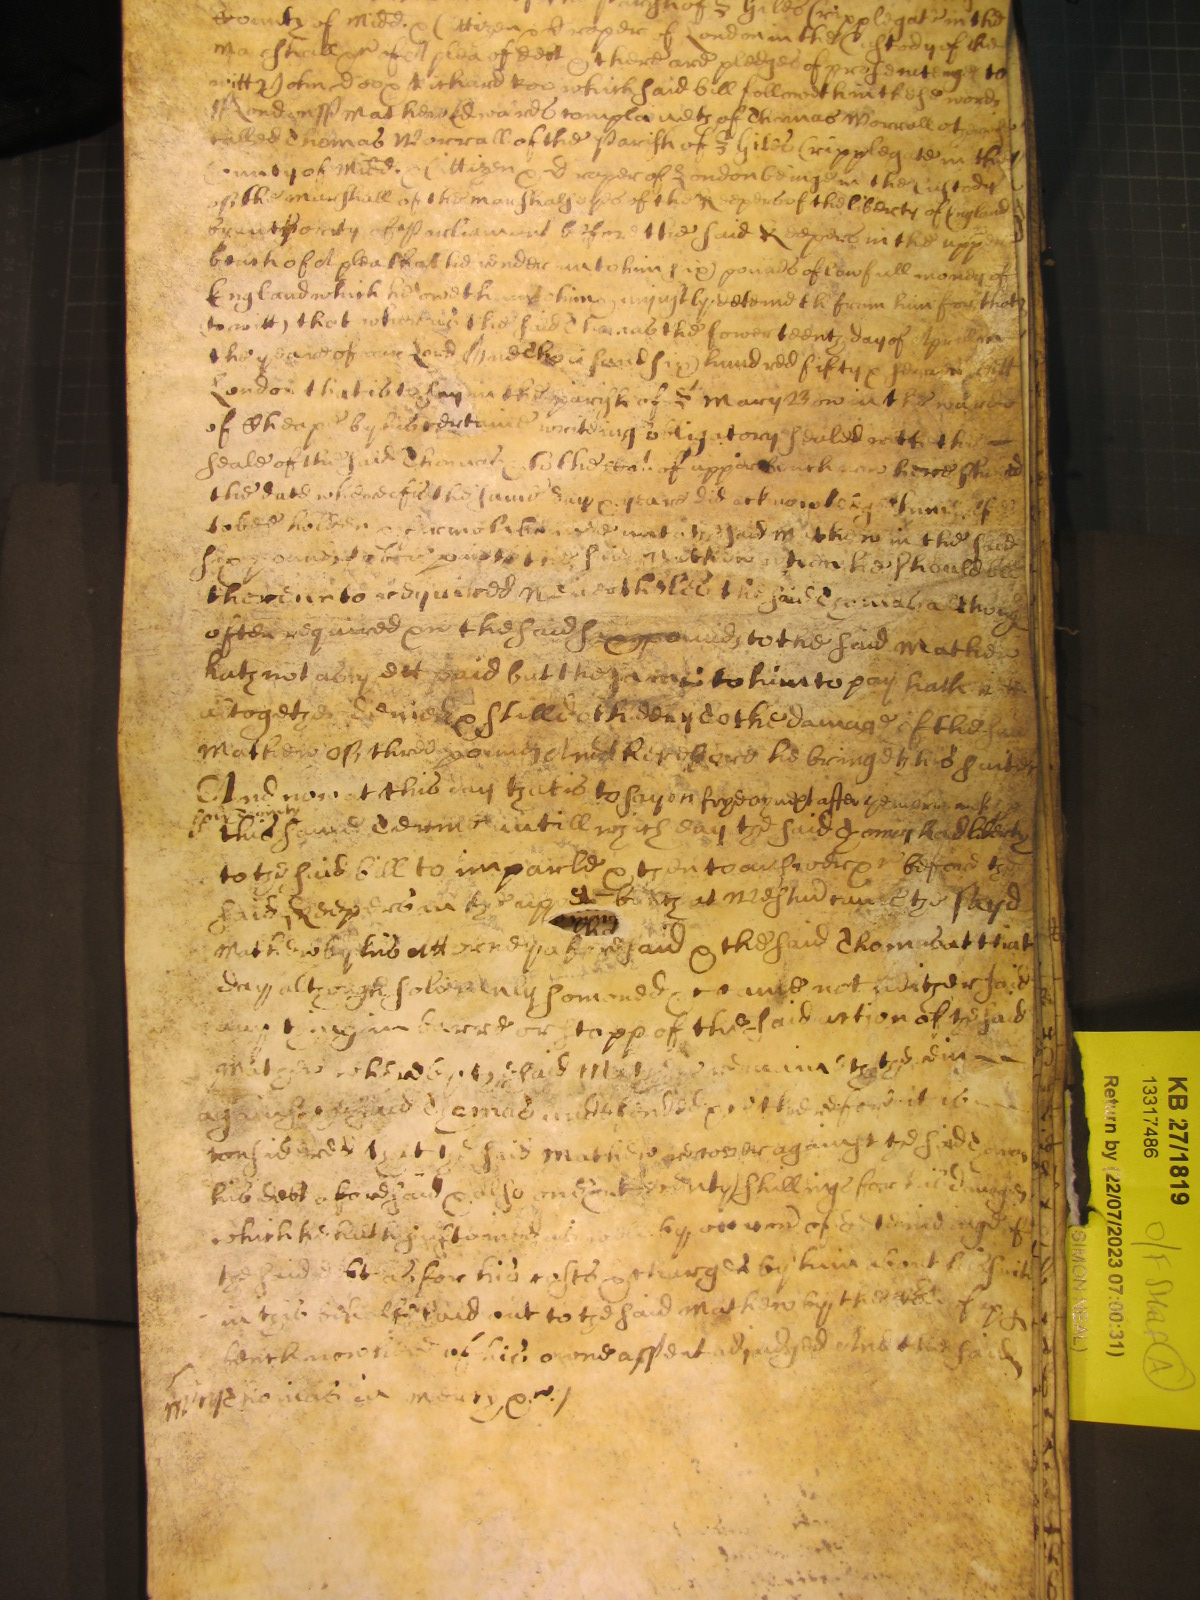 parish of St Giles Cripplegate in the
County of Midd. & Cittizen & Draper of London in the Custody of the
Marshall &c of A plea of debt & there are pledges of prosecuteing to
witt John Doo & Richard Roo which said bill followeth in these words
London ss Mathew Edwards complaineth of Thomas Worrall otherwise
called Thomas Worrall of the Parish of St Giles Cripplegate in the
County of Midd. & Cittizen & Draper of London being in the Custody
of the Marshall of the Marshalseyes of the Keepers of the liberty of England
by authority of Parliament before the said Keepers in the upper
bench of A plea that he render unto him six pounds of lawfull money of
England which he oweth unto him & unjustly deteineth from him for that
to witt that whereas the said Thomas the fowerteenth day of Aprill in
the yeare of our Lord One thousand six hundred fifty & seaven att
London that is to say in the parish of St Mary Bow in the warde
of Cheape by his certaine writeing obligatory sealed with the
seale of the said Thomas & to the Court of upper bench now here shewed
the date whereof is the same day & yeare did acknowledge himselfe
to bee holden & firmely bound unto the said Mathew in the said
six pounds to bee paid to the said Mathew when he should bee
thereunto required Neverthelesse the said Thomas although
often required &c the said six pounds to the said Mathew
hath not as yett paid but the same to him to pay hath
altogether denied & still doth deny to the damage of the said
Mathew of three pounds And therefore he bringeth his suite &c
And now at this day that is to say on fryday next after
this same Terme untill which day the said Thomas had liberty
to the said bill to imparle & then to answere &c before the
said Keepers in the upper bench at Westm came the sayd
Mathew by his attorney aforesaid & the said Thomas at that
day although solemnly somoned &c came not neither said
any thing in barre or stopp of the said action of the said
Mathew whereby the said Mathew remaineth therein
against the said Thomas undefended &c therefore it is
considered that the said Mathew recover against the said Thomas
his debt aforesaid & also shillings for his damages
which he hath susteined by occasion of deteineing of
the said debt as for his costs & charges by him about his suite
in this behalfe laid out to the said Mathew by the Court of upper
bench now here of his owne assent adjudged And the said
Thomas in Mercy &c./
KB 27/1819
13317486
Return by (22/07/2023 07:00:31)
SIMON NEAL)
O/F Staff A